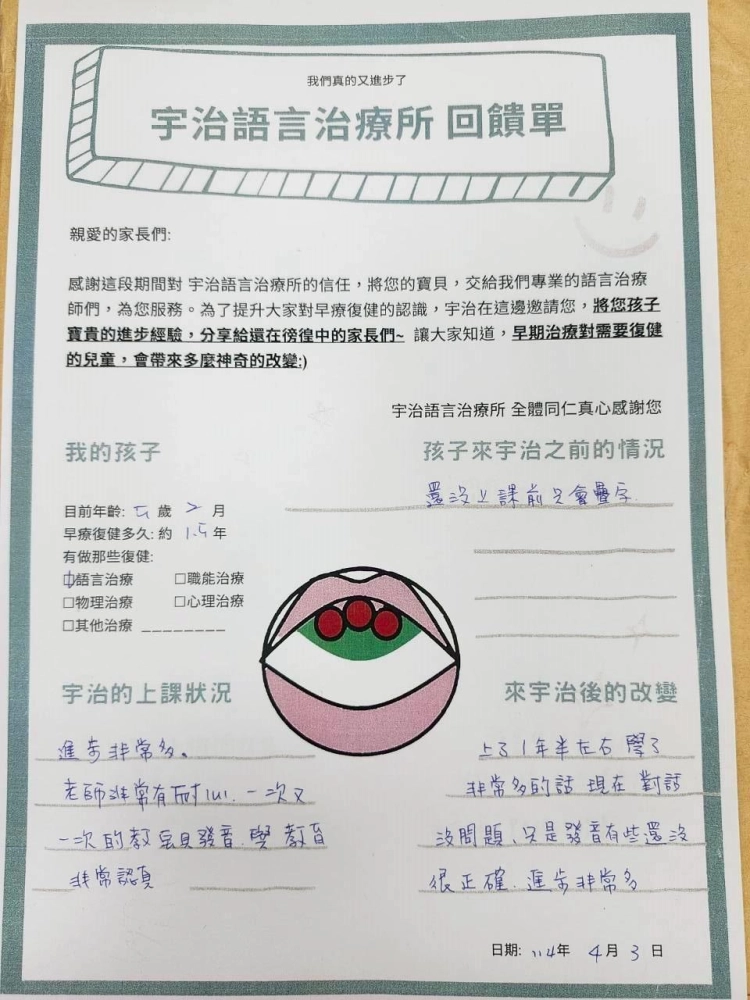 我們真的又進步了
宇治語言治療所 回饋單
親愛的家長們:
感謝這段期間對 宇治語言治療所的信任，將您的寶貝，交給我們專業的語言治療
師們，為您服務。為了提升大家對早療復健的認識，宇治在這邊邀請您，將您孩子
寶貴的進步經驗，分享給還在徬徨中的家長們~ 讓大家知道，早期治療對需要復健
的兒童，會帶來多麼神奇的改變:)
宇治語言治療所 全體同仁真心感謝您
我的孩子
目前年齡: 5 歲 2 月
早療復健多久: 約 1.5 年
有做那些復健:
☑語言治療 □職能治療
□物理治療 □心理治療
□其他治療 ________
孩子來宇治之前的情況
還沒上課前只會疊字.
宇治的上課狀況
進步非常多。
老師非常有耐心. 一次又
一次的教 發音. 與 教育
非常認真
來宇治後的改變
上了1年半左右 學了
非常多的話 現在 對話
沒問題、只是發音有些還沒
很正確. 進步非常多
日期: 114年 4月 3 日